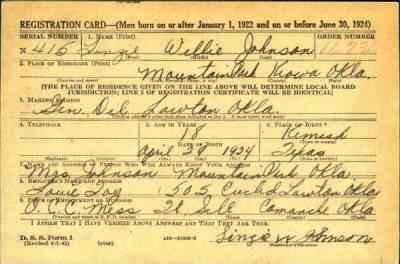 REGISTRATION CARD—(Men born on or after January 1, 1922 and on or before June 30, 1924)
SERIAL NUMBER 1. NAME (Print) ORDER NUMBER
N 415 Linzie Willie Johnson
2. PLACE OF RESIDENCE (Print)
Mountain Park Kiowa Okla.
[THE PLACE OF RESIDENCE GIVEN ON THE LINE ABOVE WILL DETERMINE LOCAL BOARD
JURISDICTION; LINE 2 OF REGISTRATION CERTIFICATE WILL BE IDENTICAL]
3. MAILING ADDRESS
Gen. Del Lawton Okla.
4. TELEPHONE 5. AGE IN YEARS 6. PLACE OF BIRTH
18
DATE OF BIRTH
April 29 1924 Texas
7. NAME AND ADDRESS OF PERSON WHO WILL ALWAYS KNOW YOUR ADDRESS
Mrs Johnson Mountain Park Okla.
8. EMPLOYER'S NAME AND ADDRESS
505 Euclid Lawton Okla
9. PLACE OF EMPLOYMENT OR BUSINESS
Mess Ft. Sill Comanche Okla
I AFFIRM THAT I HAVE VERIFIED ABOVE ANSWERS AND THAT THEY ARE TRUE.
D. S. S. Form 1
Linzie W Johnson